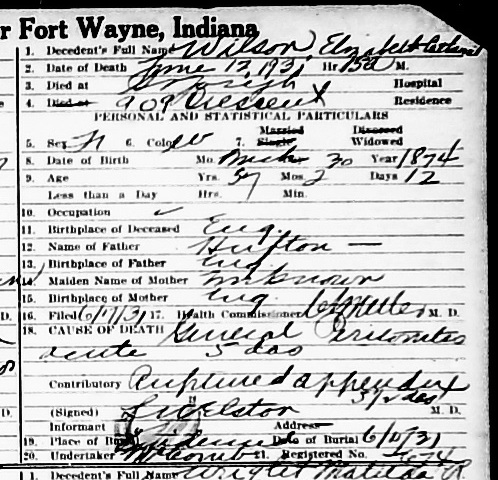 r Fort Wayne, Indiana
1. Decedent's Full Name Wilson, Elizabeth
2. Date of Death June 12, 1931 Hr. 15a M.
3. Died at St Joseph Hospital
4. Died at 909 Crescent Residence
PERSONAL AND STATISTICAL PARTICULARS
5. Sex F 6. Color W 7. Married Single Divorced Widowed
8. Date of Birth Mo. March 30 Year 1874
9. Age Yrs. 57 Mos. 2 Days 12
Less than a Day Hrs. Min.
10. Occupation ✓
11. Birthplace of Deceased Eng.
12. Name of Father Hufton —
13. Birthplace of Father Eng
14. Maiden Name of Mother unknown
15. Birthplace of Mother Eng.
D. 16. Filed 6/17/31 17. Health Commissioner M. D.
18. CAUSE OF DEATH General Peritonitis
acute 5 das
Contributory Ruptured appendix
D. (Signed) Elston 5 1/2 das M. D.
Informant Address
19. Place of Burial Date of Burial 6/ /31
20. Undertaker McComb 21. Registered No. 674
1. Decedent's Full Name Wright Matilda R